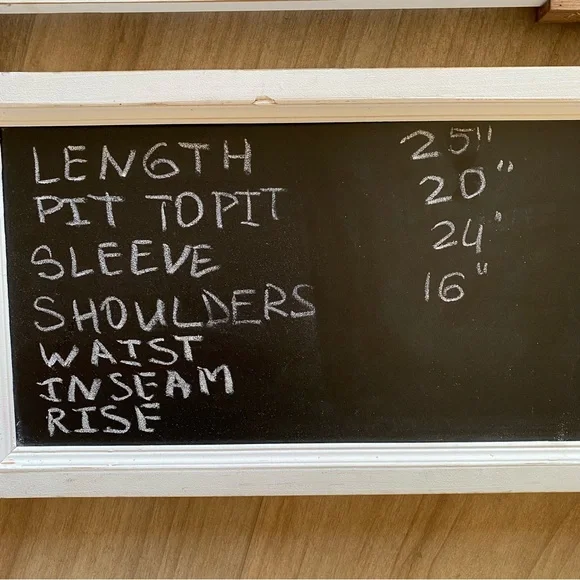 LENGTH 25"
PIT TO PIT 20"
SLEEVE 24'
SHOULDERS 16"
WAIST
INSEAM
RISE